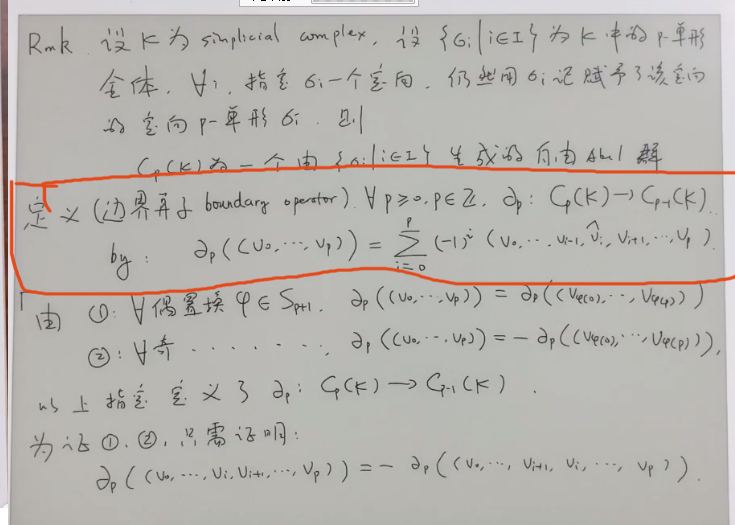 Rmk 设 K 为 simplicial complex, 设 {σi | i∈I} 为 K 中的 p-单形
全体. ∀i, 指定 σi 一个定向, 仍然用 σi 记赋予了该定向
的定向 p-单形 σi. 则
Cp(K) 为一个由 {σi | i∈I} 生成的自由 Abel 群
定义 (边界算子 boundary operator). ∀p≥0, p∈Z, ∂p: Cp(K) → Cp-1(K)
by: ∂p((v0,…,vp)) = Σ_{i=0}^{p} (-1)^i (v0,…,vi-1, v̂i, vi+1,…,vp).
由 ①: ∀偶置换 φ∈Sp+1, ∂p((v0,…,vp)) = ∂p((vφ(0),…,vφ(p)))
②: ∀奇 ········, ∂p((v0,…,vp)) = -∂p((vφ(0),…,vφ(p))),
以上指定定义了 ∂p: Cp(K) → Cp-1(K).
为证①、②, 只需证明:
∂p((v0,…,vi,vi+1,…,vp)) = -∂p((v0,…,vi+1,vi,…,vp)).